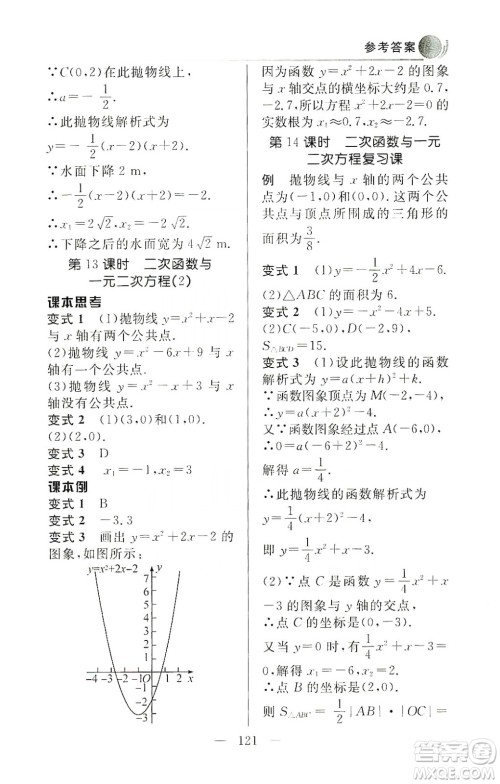 参考答案
∵C(0,2)在此抛物线上,
∴a=-1/2
∴此抛物线解析式为
y=-1/2(x+2)(x-2)
∵水面下降2 m,
∴-1/2(x+2)(x-2)=-2
∴x₁=2√2,x₂=-2√2
∴下降之后的水面宽为4√2 m.
第13课时 二次函数与
一元二次方程(2)
课本思考
变式1 (1)抛物线y=x²+x-2与
x轴有两个公共点.
(2)抛物线y=x²-6x+9与x轴
只有一个公共点.
(3)抛物线y=x²-x+1与x轴
没有公共点.
变式2 (1)(3,0)和(1,0)
(2)(2,0)
变式3 D
变式4 x₁=-1,x₂=3
课本例
变式1 B
变式2 -3.3
变式3 画出y=x²+2x-2的
图象,如图所示:
y=x²+2x-2
y
7
6
5
4
3
2
1
-4 -3 -2 -1 O 1 2 x
-1
-2
-3
因为函数y=x²+2x-2的图象
与x轴交点的横坐标大约是0.7,
-2.7,所以方程x²+2x-2=0的
实数根为x₁≈0.7,x₂≈-2.7.
第14课时 二次函数与一元
二次方程复习课
例 抛物线与x轴的两个公共
点为(-1,0),(0.5,0).这两个
公共点与顶点所形成的三角形的
面积为3/8.
变式1 (1)y=-x²-2x+3.
(2)△ABC的面积为6.
变式2 (1)y=-x²+4x+5.(2)
S△BCD=15.
变式3 (1)设此抛物线的函数
解析式为y=a(x+h)²+k
∵函数图象顶点为M(-2,-4)
∴y=a(x+2)²-4
又∵函数图象经过点A(-6,0)
∴0=a(-6+2)²-4
解得a=1/4.
∴此函数的解析式为
y=1/4(x+2)²-4
即y=1/4x²+x-3.
(2)∵点C是函数y=1/4x²+x-
3的图象与y轴的交点,
∴点C的坐标是(0,-3)
又当y=0时,有y=1/4x²+x-
3=0,解得x₁=-6,x₂=2
∴点B的坐标是(2,0)
则S△ABC=1/2|AB|·|OC|=
121